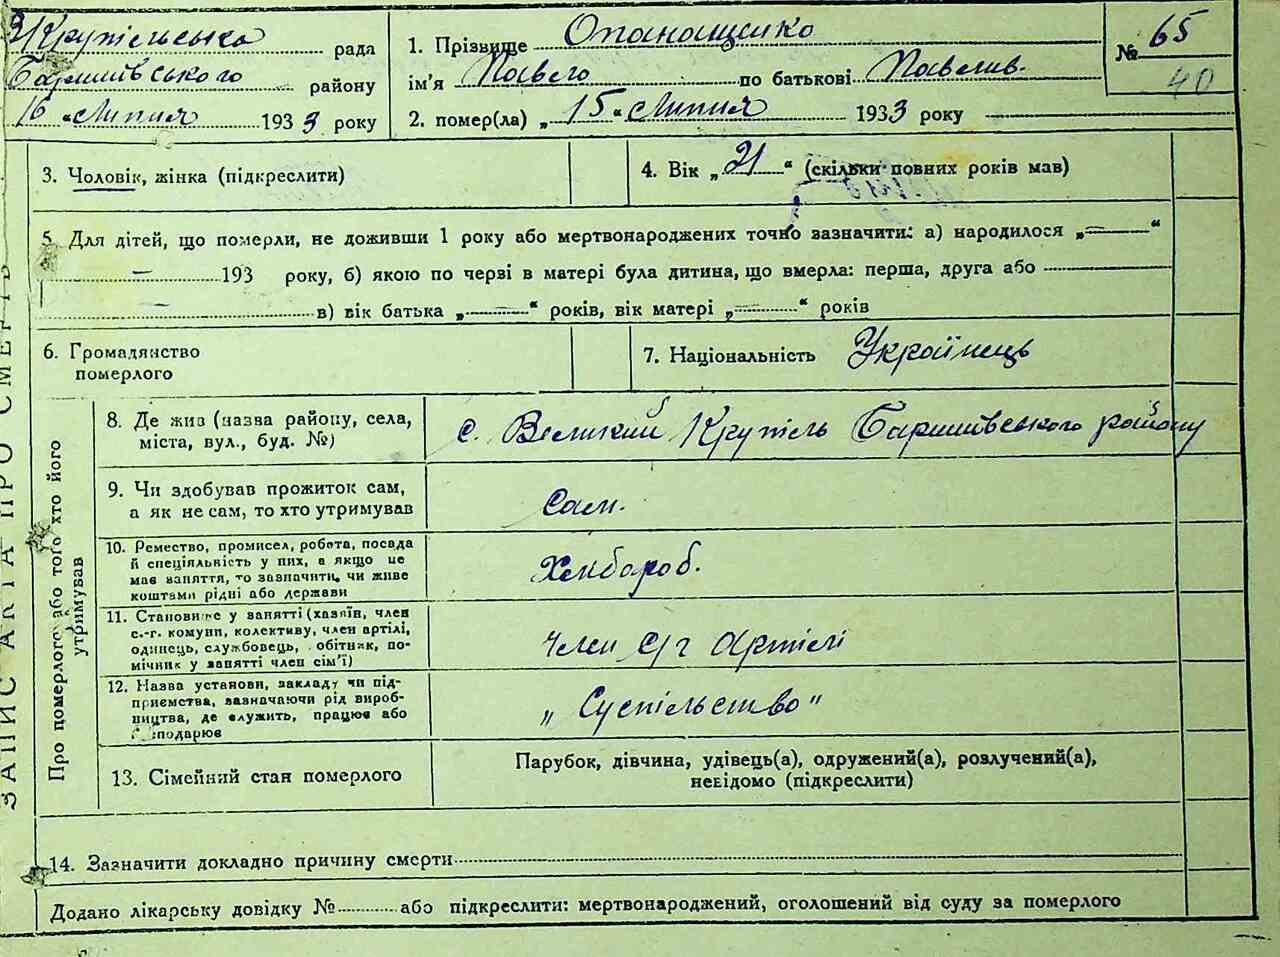 В/Крупільська рада
Баришівського району
16 " Липня 1933 року
1. Прізвище Опанащенко
ім'я Павло по батькові Павлив.
2. помер(ла) „ 15 " Липня 1933 року
№ 65
40
3. Чоловік, жінка (підкреслити)
4. Вік „ 21 " (скільки повних років мав)
5. Для дітей, що померли, не доживши 1 року або мертвонароджених точно зазначити: а) народилося „ — "
— 193 року, б) якою по черві в матері була дитина, що вмерла: перша, друга або —
— в) вік батька „ — " років, вік матері „ — " років
6. Громадянство
померлого
7. Національність Українець
ЗАПИС АКТА ПРО СМЕРТЬ
Про померлого або того хто його
утримував
8. Де жив (назва району, села,
міста, вул., буд. №)
с. Великий Крупіль Баришівського району
9. Чи здобував прожиток сам,
а як не сам, то хто утримував
сам.
10. Ремество, промисел, робота, посада
й спеціяльність у них, а якщо не
має заняття, то зазначити, чи живе
коштами рідні або держави
Хлібороб.
11. Становище у занятті (хазяїн, член
с.-г. комуни, колективу, член артілі,
одинець, службовець, робітник, по-
мічник у занятті член сім'ї)
Член с/г Артілі
12. Назва установи, закладу чи під-
приємства, зазначаючи рід вироб-
ництва, де служить, працює або
господарює
„ Суспільство "
13. Сімейний стан померлого
Парубок, дівчина, удівець(а), одружений(а), розлучений(а),
невідомо (підкреслити)
14. Зазначити докладно причину смерти
Додано лікарську довідку № або підкреслити: мертвонароджений, оголошений від суду за померлого